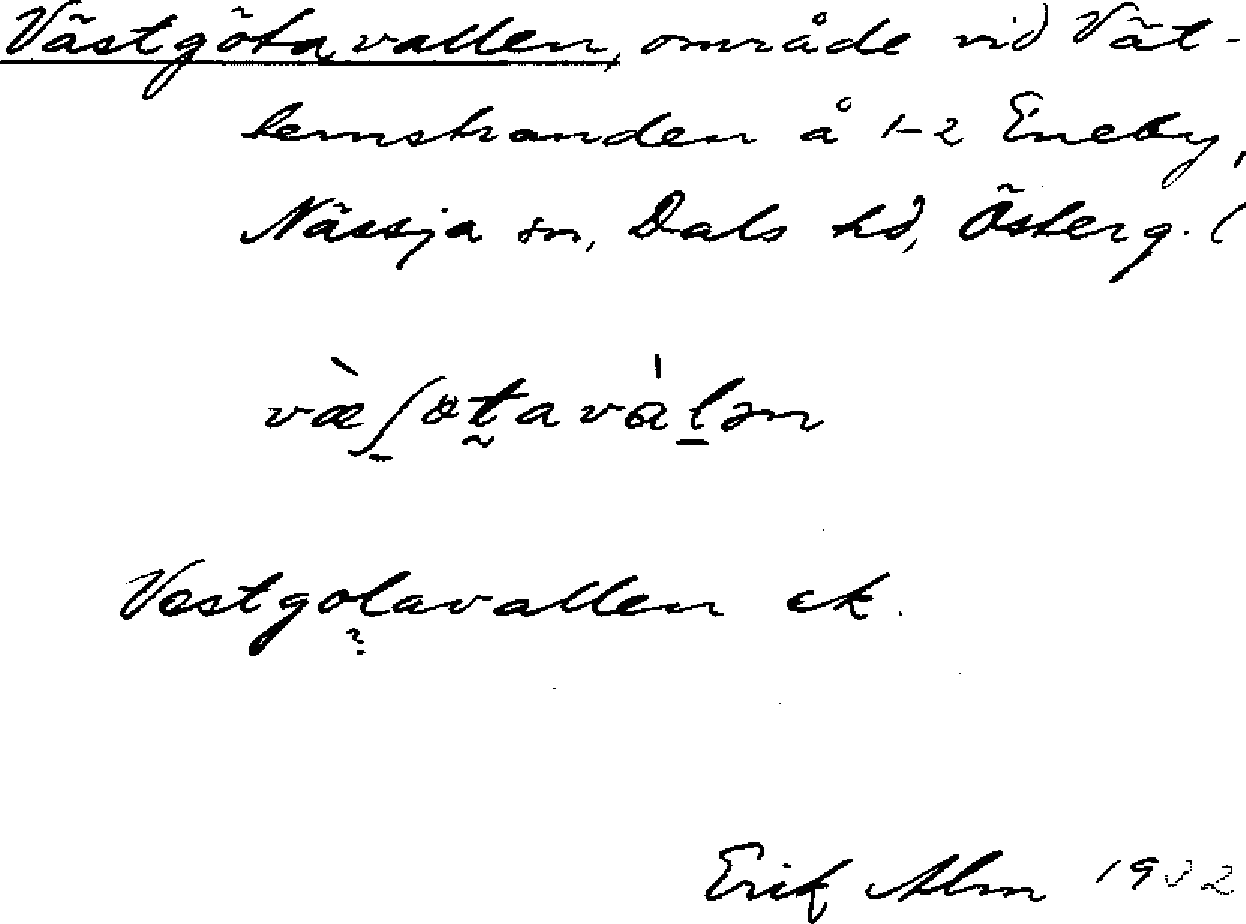 Västgötavallen, område vid Vät-
ternstranden å 1-2 Eneby,
Nässja sn, Dals hd, Österg. (
Vestgotavallen ek.
Erik Alm